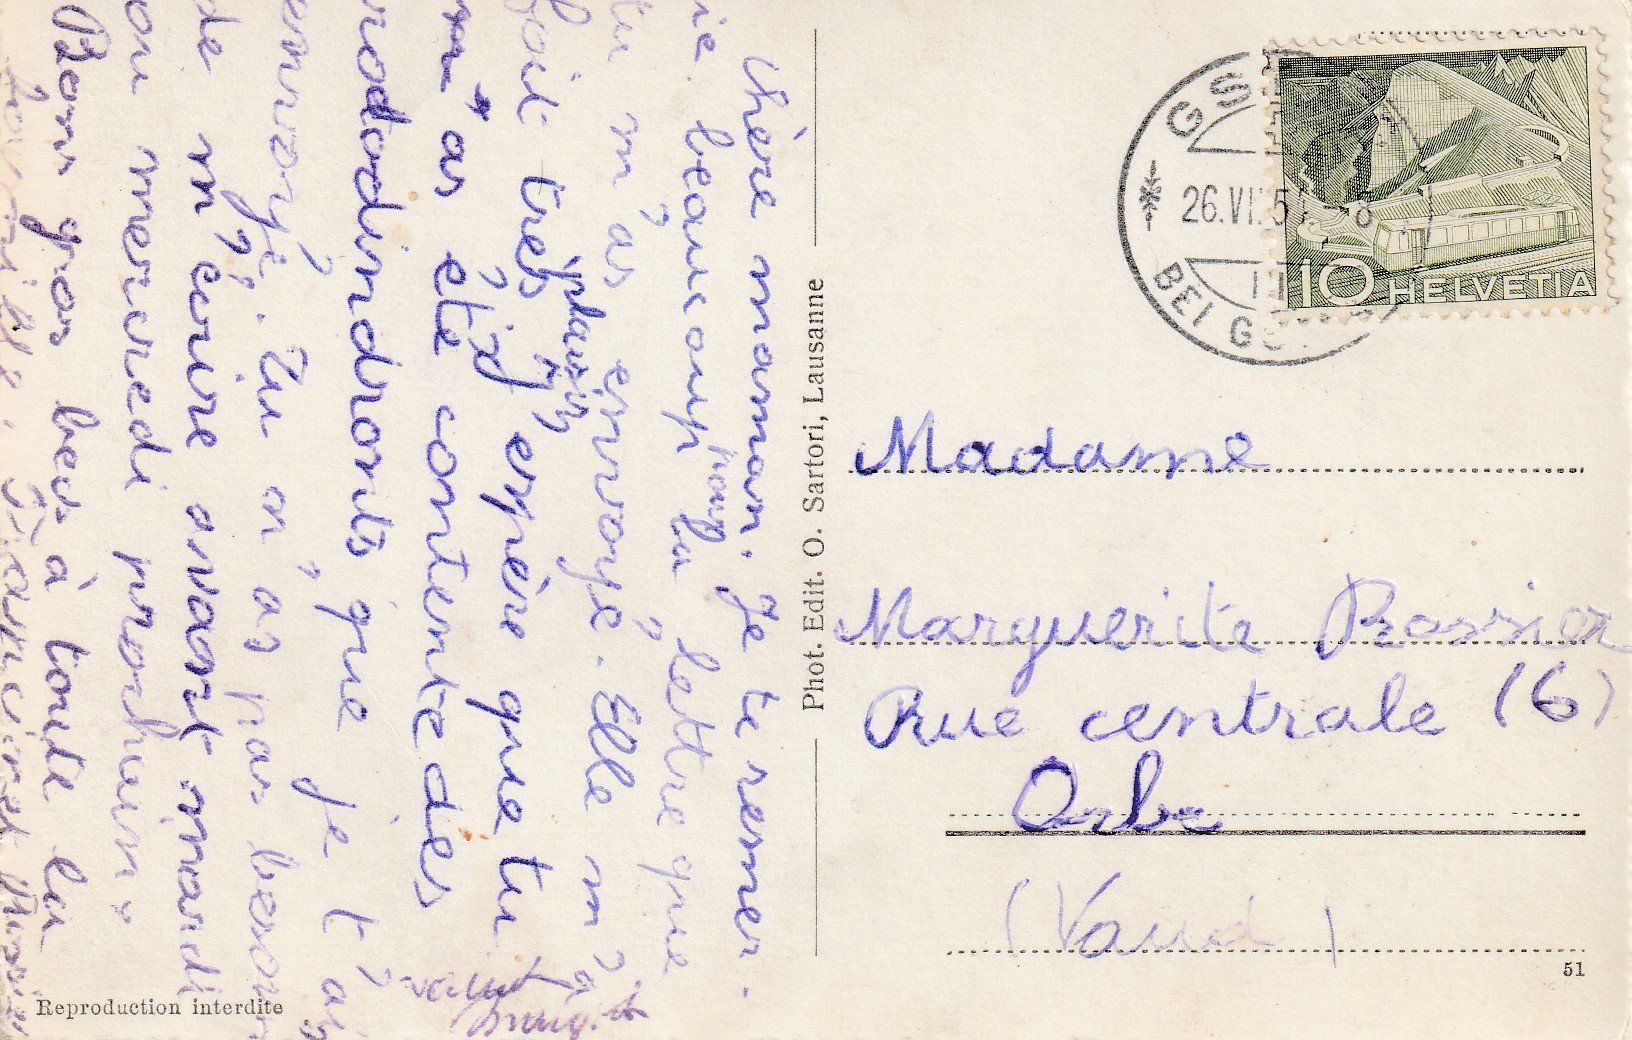 chère maman. Je te remer-
cie beaucoup pour la lettre que
tu m'as envoyé. Elle m'a
fait très plaisir. J'espère que tu
as été contente des
rododindronts que je t'ai
envoyé. Tu n'as pas besoin
de m'écrire avant mardi
ou mercredi prochain.
Bons gros becs à toute la
famille.
Phot. Edit. O. Sartori, Lausanne
Reproduction interdite
GST
26.VII.51
BEI GS
10 HELVETIA
Madame
Marguerite
Rue centrale (6)
Orbe
(Vaud)
51